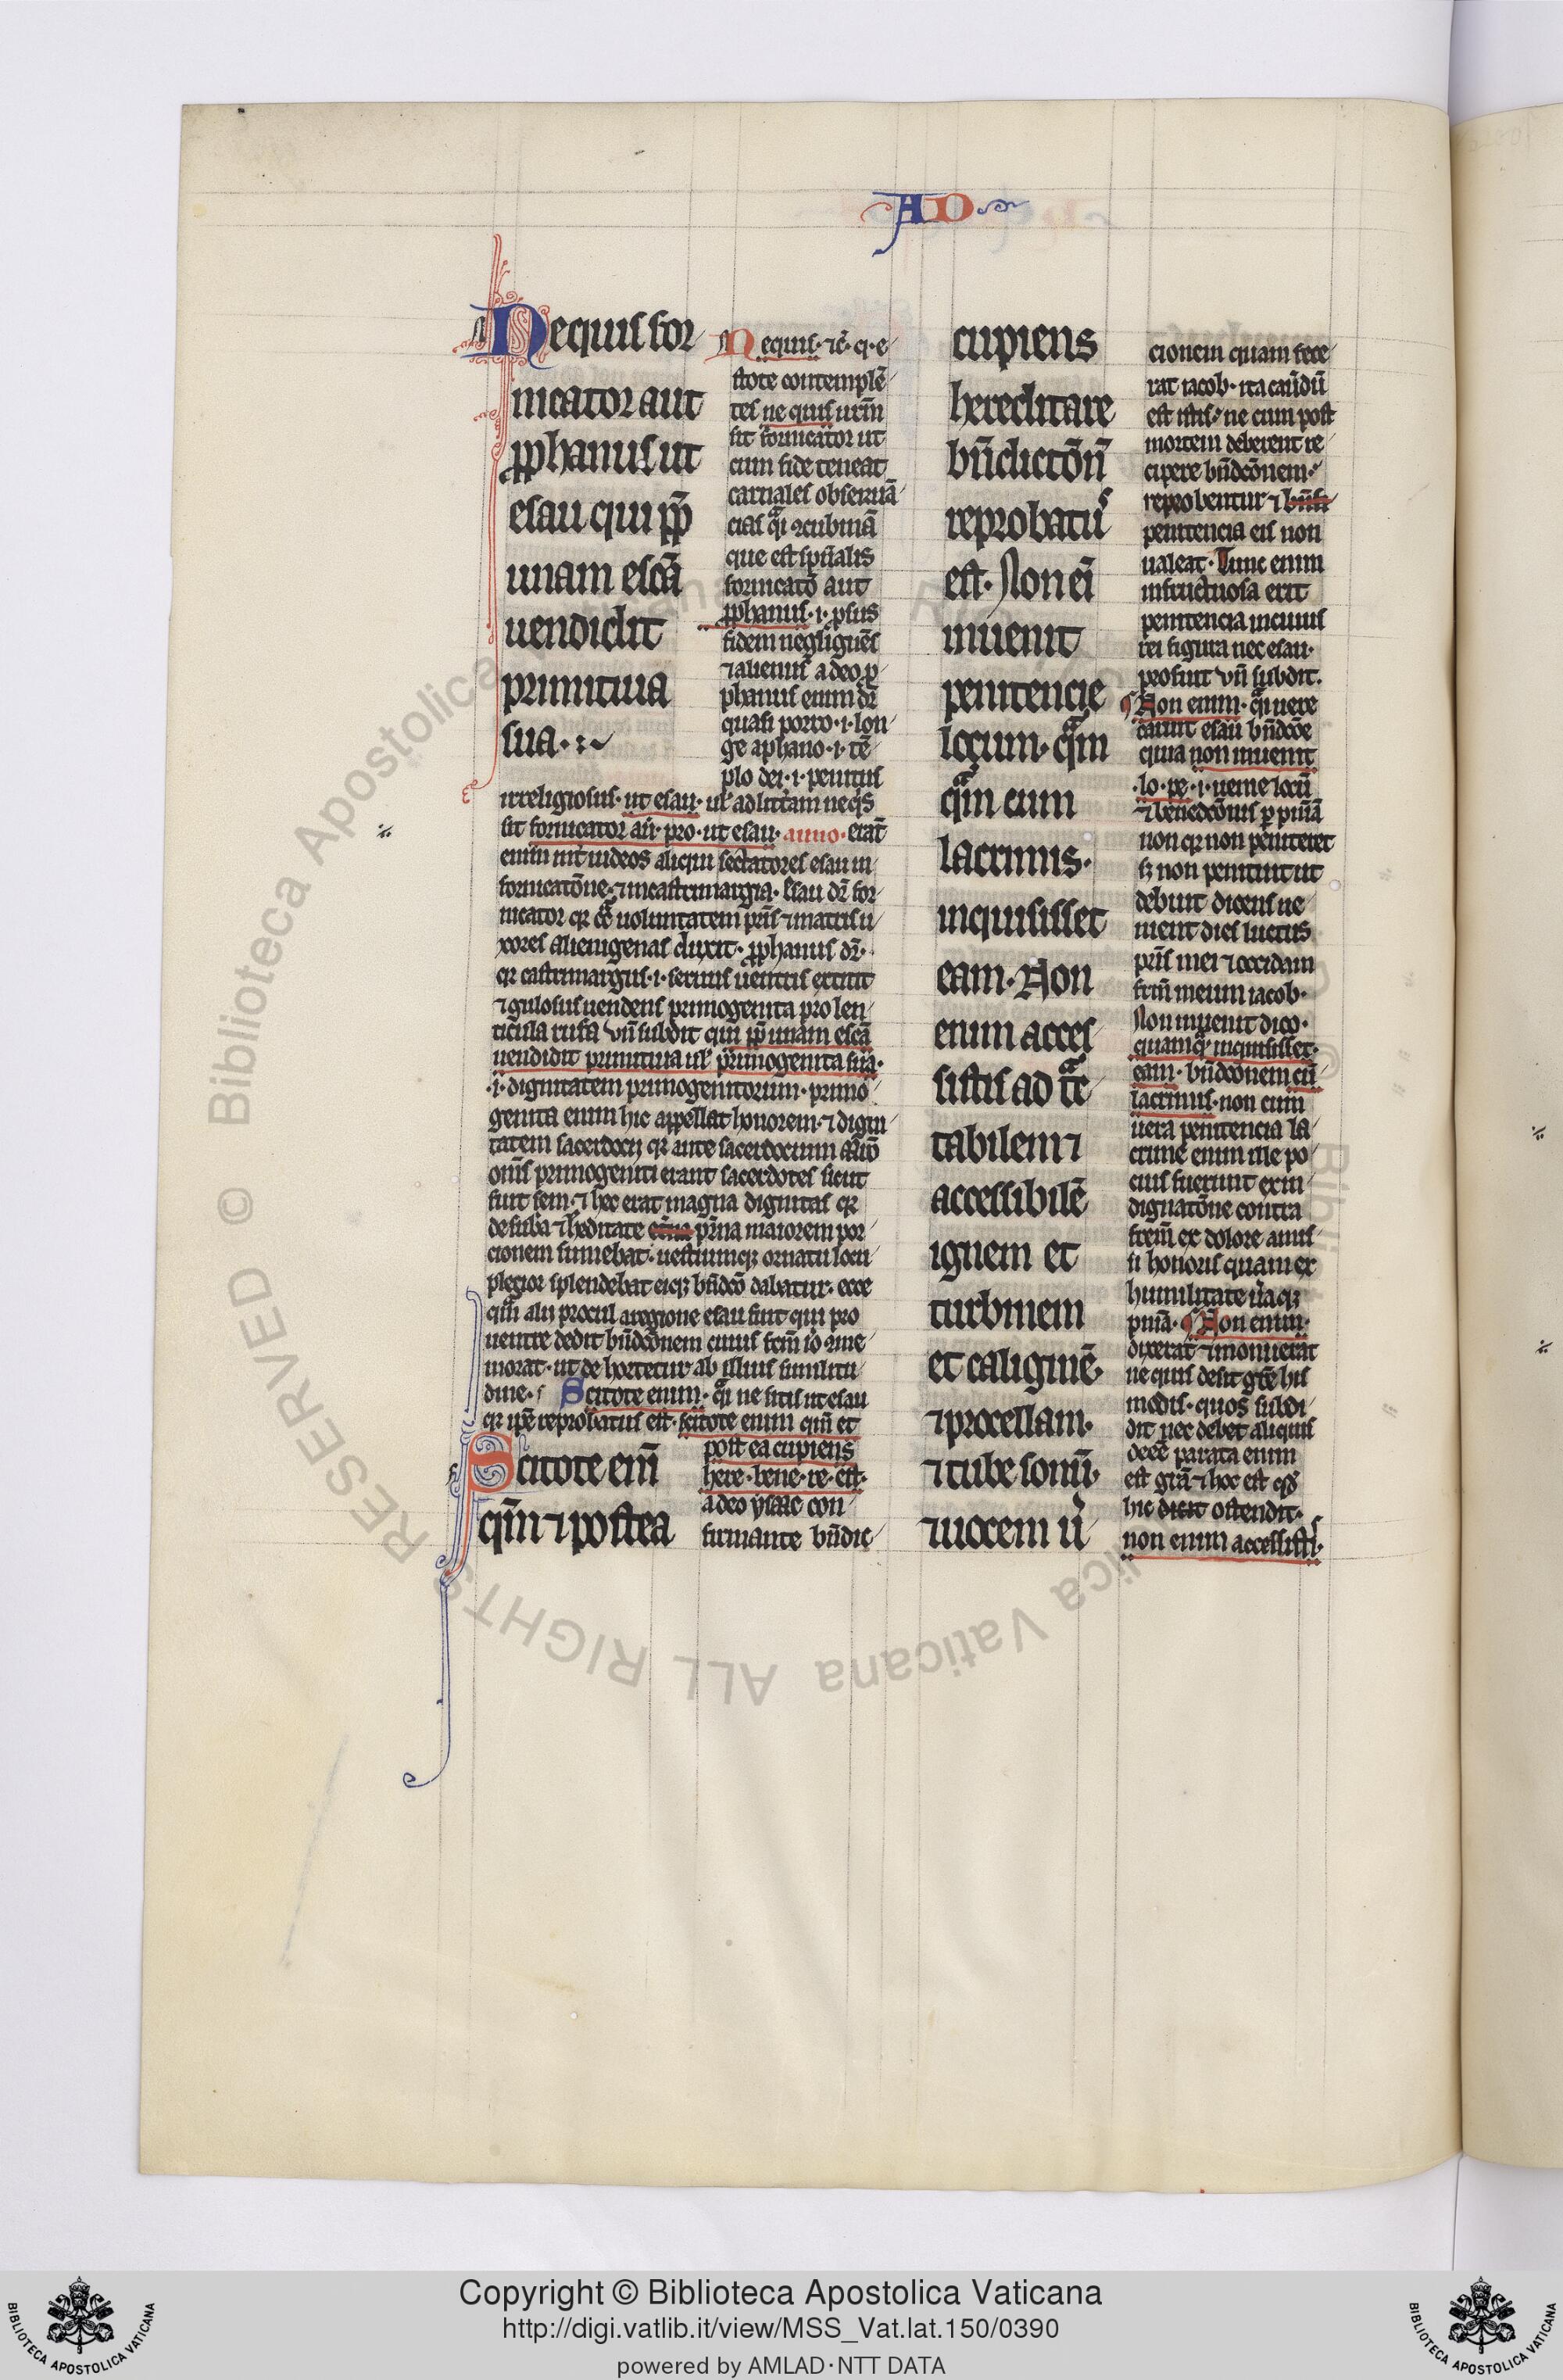 AD
Nequis for
nicator aut
ꝓphanus ut
esau qui ꝓꝑ
unam escā
uendidit
primitiua
sua·
Nequis· ⁊c̄· q·e
stote contemplē
tes ne quis ur̄m
sit fornicator ut
cum fide teneat
carnales obseruā
cias qͣi ꝯcubinā
que est sp̄ualis
fornicatō aut
ꝓphanus·i· ꝓsus
fidem negligēs
⁊alienus a deo ꝓ
phanus enim dr̄
quasi porro·i·lon
ge aphano·i·tē
plo dei·i·penitus
irreligiosus· ut esau· ul' ad litt̄am neq̇s
sit fornicator aū· pro· ut esau· erāt
enim int̄ iudeos aliqui sectatores esau in
fornicatōne·⁊incastrimargia· Esau dr̄ for
nicator qꝛ ꝯͣ uoluntatem pr̄is ⁊matris u
xores alienigenas duxit· ꝓphanus dr̄·
qꝛ castrimargus·i·seruus uentris extitit
⁊gulosus uendens primogenita pro len
ticula rufa Vn̄ subdit qui ꝓꝑ unam escā
uendidit primitiua ul' primogenita sua·
·i·dignitatem primogenitorum·primo
genita enim hic appellat honorem·⁊digni
tatem sacerdocij qꝛ ante sacerdocium aarō
om̄s primogeniti erant sacerdotes sicut
fuit sem·⁊ hec erat magna dignitas qꝛ
de suba ⁊hēditate pr̄na maiorem por
cionem sumebat· uestiumqꝫ ornatu locu
plecior splendebat eiqꝫ bn̄dcō dabatur· ecce
qm̄ alij procul a regione esau sint qui pro
uentre dedit bn̄dcōnem cuius frm̄ iō ꝯme
morat· ut de hortetur ab illius similitu
dine· Scitote enim· qͣi ne sitis ut esau
qꝛ ip̄e reprobatus est· scitote enim qm̄ et
Scitote em̄
qm̄ ⁊ postea
post ea cupiens
here·bene·re·est·
a deo ysaac con
firmante bn̄dic
cupiens
hereditare
bn̄dictōn̄
reprobatuˢ
est· Non ei
inuenit
penitencie
locum· qͣm
qͣm cum
lacrimis·
inquisisset
eam· Non
enim acces
sistis ad tͣc
tabilem ⁊
accessibilē
ignem et
turbinem
et caliginē·
⁊procellam·
⁊tube sonū·
⁊uocem u
cionem quam fece
rat iacob· ita cauēdū
est istis· ne cum post
mortem deberent re
cipere bn̄dcōnem·
reprobentur ⁊
penitencia eis non
ualeat· Tunc enim
infructuosa erit
penitencia in cuius
rei figura nec esau·
profuit Vn̄ subdit.
¶Non enim· qͣi uere
caruit esau bn̄dcōe
quia non inuenit
·lo·pe·i·uenie locū
⁊benedcōnis ꝑ pniā
non qꝛ non peniteret
sꝫ non penituit ut
debuit dicens ue
nient dies luctus
pr̄is mei ⁊occidam
frm̄ meum iacob·
Non inuenit dico·
quamqꝫ inquisisset·
eam· bn̄dcōnem cū
lacrimis·non cum
uera penitencia la
crime enim ille po
cius fuerunt ex in
dignatōne contra
frem̄ ex dolore amis
si honoris quam ex
humilitate u̇aqꝫ
pniā· ¶Non enim·
dixerat ⁊monuerat
ne quis desit grē hiis
modis· quos subdi
dit nec debet aliquis
deēē parata enim
est grā ⁊ hoc est qḋ
hic dicit ostendit·
non enim accessistis·
Copyright © Biblioteca Apostolica Vaticana
http://digi.vatlib.it/view/MSS_Vat.lat.150/0390
powered by AMLAD·NTT DATA
BIBLIOTECA APOSTOLICA VATICANA
BIBLIOTECA APOSTOLICA VATICANA